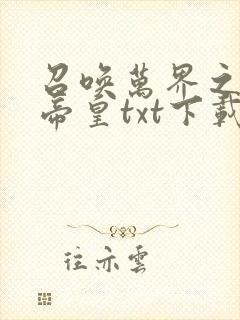 召喚萬界之
帝皇txt下載
往亦雲